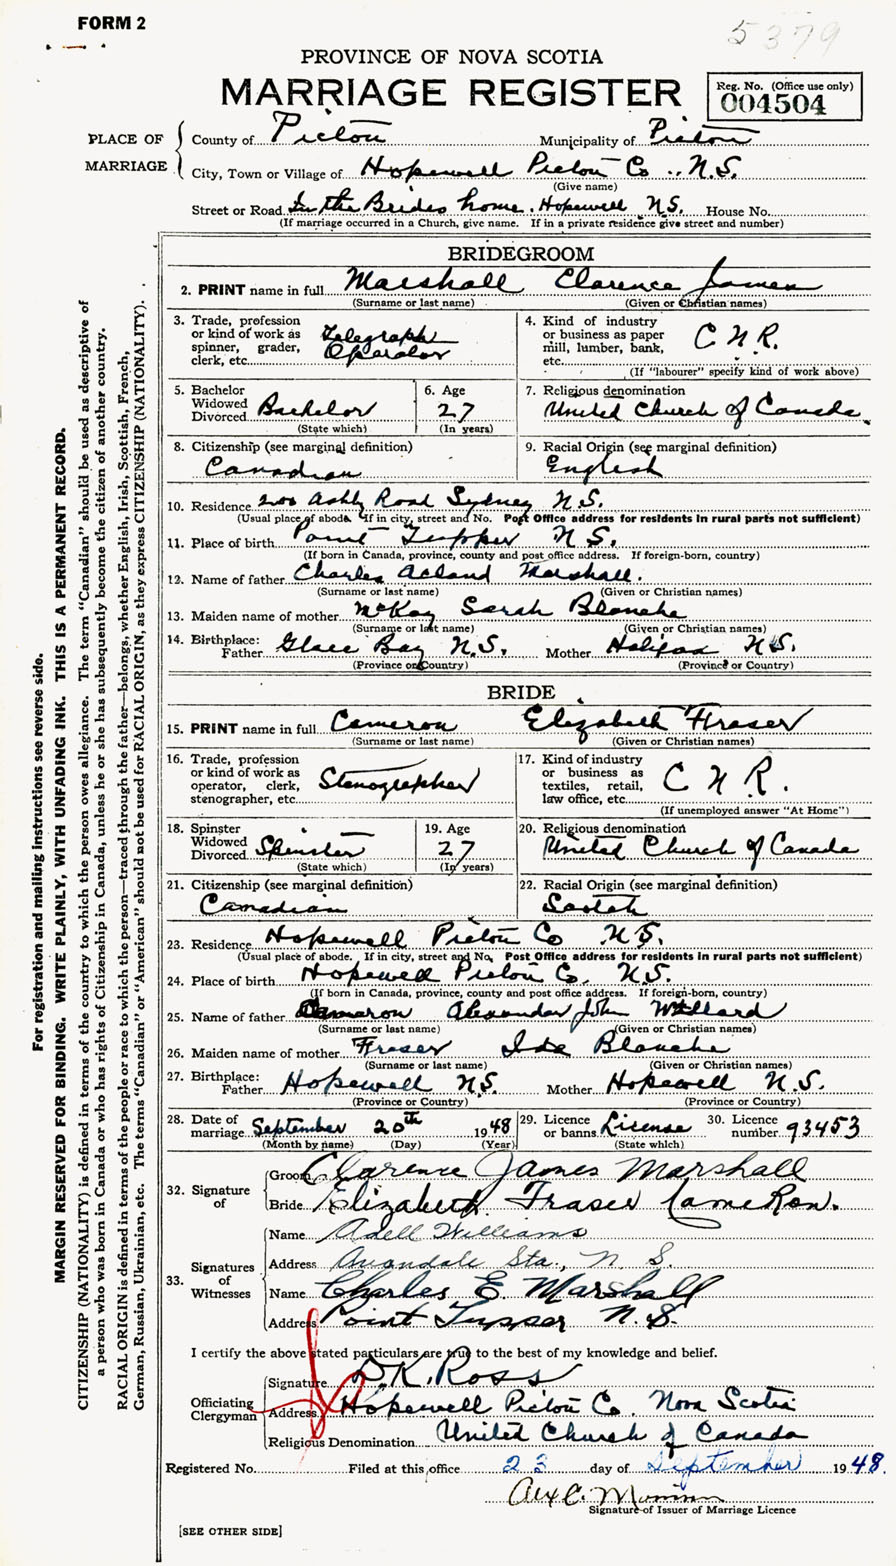 FORM 2
5379
PROVINCE OF NOVA SCOTIA
MARRIAGE REGISTER
Reg. No. (Office use only)
004504
PLACE OF MARRIAGE
County of Pictou Municipality of Pictou
City, Town or Village of Hopewell Pictou Co., N.S.
(Give name)
Street or Road In the Brides home. Hopewell N.S. House No.
(If marriage occurred in a Church, give name. If in a private residence give street and number)
BRIDEGROOM
2. PRINT name in full Marshall Clarence James
(Surname or last name) (Given or Christian names)
3. Trade, profession or kind of work as spinner, grader, clerk, etc. Telegraph Operator
4. Kind of industry or business as paper mill, lumber, bank, etc. C N R.
(If "labourer" specify kind of work above)
5. Bachelor Widowed Divorced Bachelor
(State which)
6. Age 27
(In years)
7. Religious denomination
United Church of Canada
8. Citizenship (see marginal definition)
Canadian
9. Racial Origin (see marginal definition)
English
10. Residence 200 Ashby Road Sydney N.S.
(Usual place of abode. If in city, street and No. Post Office address for residents in rural parts not sufficient)
11. Place of birth Point Tupper N.S.
(If born in Canada, province, county and post office address. If foreign-born, country)
12. Name of father Charles Acland Marshall.
(Surname or last name) (Given or Christian names)
13. Maiden name of mother McKay Sarah Blanche
(Surname or last name) (Given or Christian names)
14. Birthplace: Father Glace Bay N.S. Mother Halifax N.S.
(Province or Country) (Province or Country)
BRIDE
15. PRINT name in full Cameron Elizabeth Fraser
(Surname or last name) (Given or Christian names)
16. Trade, profession or kind of work as operator, clerk, stenographer, etc. Stenographer
17. Kind of industry or business as textiles, retail, law office, etc. C N R.
(If unemployed answer "At Home")
18. Spinster Widowed Divorced Spinster
(State which)
19. Age 27
(In years)
20. Religious denomination
United Church of Canada
21. Citizenship (see marginal definition)
Canadian
22. Racial Origin (see marginal definition)
Scotch
23. Residence Hopewell Pictou Co N.S.
(Usual place of abode. If in city, street and No. Post Office address for residents in rural parts not sufficient)
24. Place of birth Hopewell Pictou Co. N.S.
(If born in Canada, province, county and post office address. If foreign-born, country)
25. Name of father Cameron Alexander John Willard
(Surname or last name) (Given or Christian names)
26. Maiden name of mother Fraser Ida Blanche
(Surname or last name) (Given or Christian names)
27. Birthplace: Father Hopewell N.S. Mother Hopewell N.S.
(Province or Country) (Province or Country)
28. Date of marriage September 20th 1948
(Month by name) (Day) (Year)
29. Licence or banns License
(State which)
30. Licence number 93453
32. Signature of
Groom Clarence James Marshall
Bride Elizabeth Fraser Cameron.
33. Signatures of Witnesses
Name Adell Williams
Address Avondale Sta., N. S.
Name Charles E. Marshall
Address Point Tupper N.S.
I certify the above stated particulars are true to the best of my knowledge and belief.
Officiating Clergyman
Signature D.K. Ross
Address Hopewell Pictou Co. Nova Scotia
Religious Denomination United Church of Canada
Registered No. Filed at this office 23 day of September 1948.
Signature of Issuer of Marriage Licence
[SEE OTHER SIDE]
For registration and mailing instructions see reverse side.
MARGIN RESERVED FOR BINDING. WRITE PLAINLY, WITH UNFADING INK. THIS IS A PERMANENT RECORD.
CITIZENSHIP (NATIONALITY) is defined in terms of the country to which the person owes allegiance. The term "Canadian" should be used as descriptive of
a person who was born in Canada or who has rights of Citizenship in Canada, unless he or she has subsequently become the citizen of another country.
RACIAL ORIGIN is defined in terms of the people or race to which the person—traced through the father—belongs, whether English, Irish, Scottish, French,
German, Russian, Ukrainian, etc. The terms "Canadian" or "American" should not be used for RACIAL ORIGIN, as they express CITIZENSHIP (NATIONALITY).